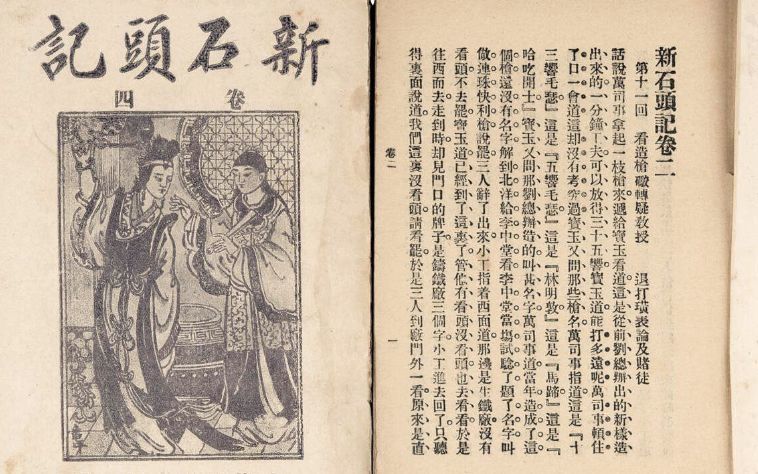 新石頭記
卷四
新石頭記卷二
第十一回　看造槍礮轉疑教授　退打璜表論及賭徒
話說萬司事拿起一枝槍來遞給寶玉看道這是從前劉總辦出的新樣造
出來的一分鐘工夫可以放得三十五響寶玉道能打多遠呢萬司事頓住
了口一會道這却沒有考究過寶玉又問那些槍名萬司事指道這是『十
三響毛瑟』這是『五響毛瑟』這是『林明敦』這是『馬蹄』這是『
哈吃開士』寶玉又問那劉總辦造的叫甚名字萬司事道當年造成了這
個槍還沒有名字解到北洋給李中堂看李中堂當場試驗了題了名字叫
做連珠快利槍說罷三人辭了出來小工指着西面道那邊是生鐵廠沒有
看頭不去罷寶玉道已經到了這裏了管他有看頭沒看頭也去看看於是
往西而去走到時却見門口的牌子是鑄鐵廠三個字小工進去回了只聽
得裏面說道我們這裏沒看頭請看罷於是三人到廠門外一看原來是直
卷二
一